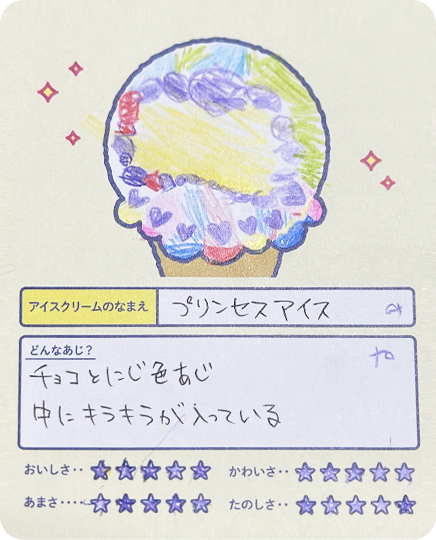 アイスクリームのなまえ プリンセスアイス
どんなあじ？
チョコとにじ色あじ
中にキラキラが入っている
おいしさ‥ ★★★★★ かわいさ‥ ★★★★★
あまさ‥‥ ★★★★★ たのしさ‥ ★★★★★